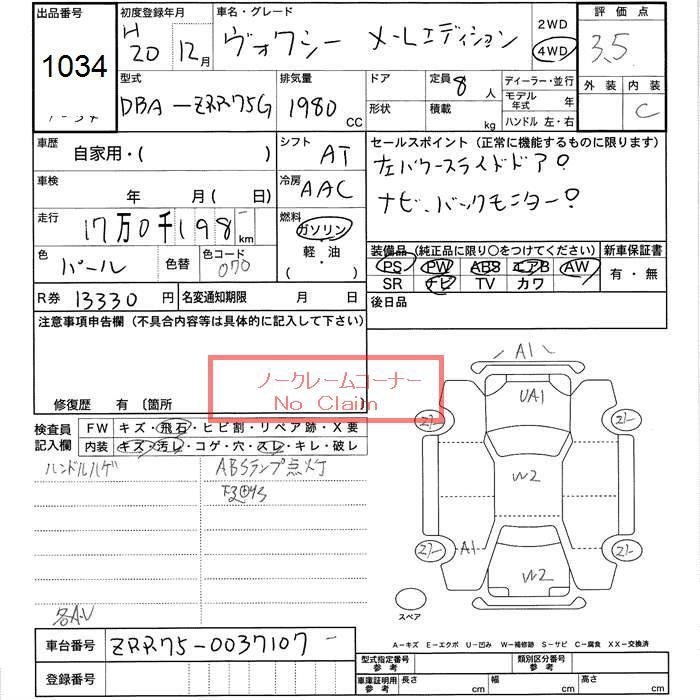 出品番号
1034
初度登録年月
H 20 12月
車名・グレード
ヴォクシー X-Lエディション
2WD
4WD
評価点
3.5
外装 内装
C
型式
DBA-ZRR75G
排気量
1980 CC
ドア
形状
定員 8 人
積載 kg
ディーラー・並行
モデル年式 年
ハンドル 左・右
車歴
自家用・( )
シフト
AT
車検
年 月( 日)
冷房
AAC
走行
17万0千198 km
燃料
ガソリン
軽・油
( )
色
パール
色替
色コード
070
R券 13330 円
名変通知期限 月 日
セールスポイント (正常に機能するものに限ります)
左パワースライドドア。
ナビ、バックモニター。
装備品 (純正品に限り〇をつけてください)
PS PW ABS エアB AW
SR ナビ TV カワ
新車保証書
有・無
後日品
注意事項申告欄 (不具合内容等は具体的に記入して下さい)
ノークレームコーナー
No Claim
修復歴 有 〔箇所 〕
検査員記入欄
FW キズ・飛石・ヒビ割・リペア跡・X要
内装 キズ・汚レ・コゲ・穴・スレ・キレ・破レ
ハンドルハゲ
ABSランプ点灯
各A・U
A1
UA1
W2
A1
W2
スペア
A-キズ E-エクボ U-凹み W-補修跡 S-サビ C-腐食 XX-交換済
車台番号 ZRR75-0037107
登録番号
型式指定番号 参考
類別区分番号 参考
車庫証明用 参考
長さ cm 幅 cm 高さ cm